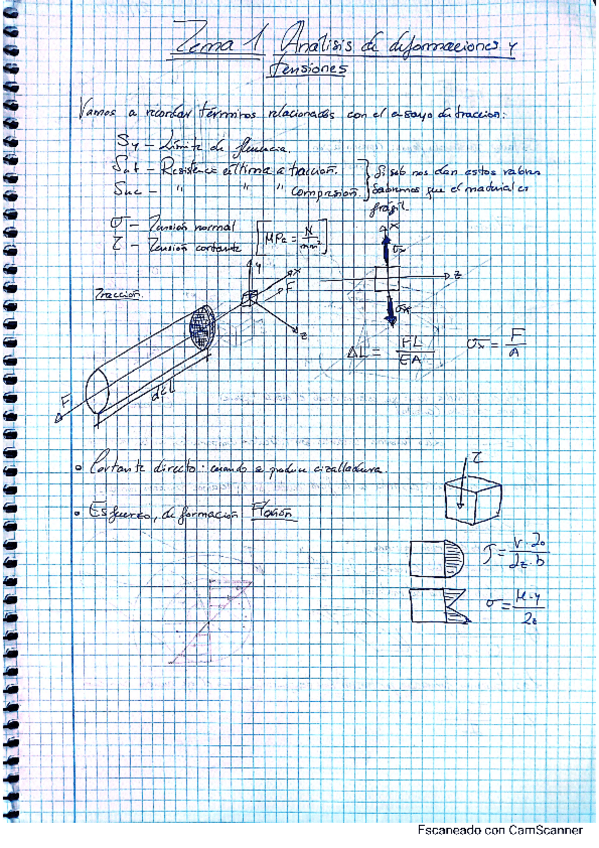 Tema 1 Análisis de deformaciones y
tensiones
Vamos a recordar términos relacionados con el ensayo de tracción:
Sy - Límite de fluencia.
Sut - Resistencia última a tracción.
Suc - " " " compresión.
Si solo nos dan estos valores
sabremos que el material es
frágil.
σ - Tensión normal
τ - Tensión cortante
[MPa = N/mm²]
Tracción.
y
x
F
z
F
L
x
σx
z
σx
ΔL = FL/EA
σx = F/A
• Cortante directo: cuando se produce cizalladura.
τ
• Esfuerzo, deformación Flexión
σ = M·y/
Escaneado con CamScanner